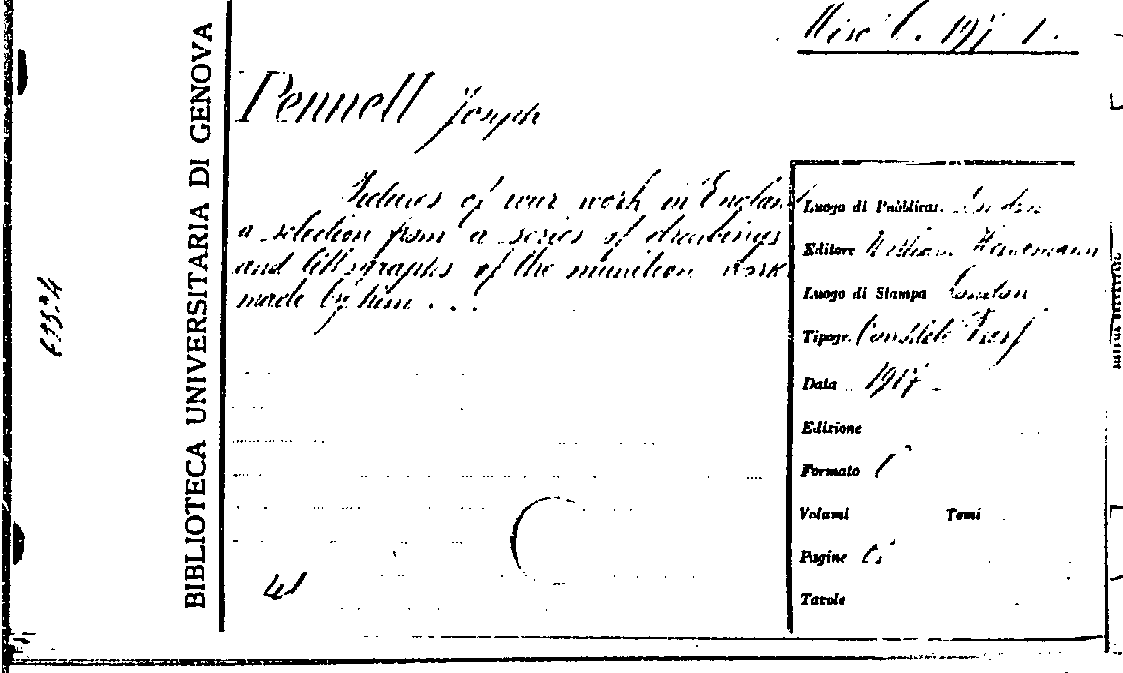 BIBLIOTECA UNIVERSITARIA DI GENOVA
Pennell Joseph
Pictures of war work in England
a selection from a series of drawings
and lithographs of the munition works
made by him . . .
Luogo di Pubblicaz. London
Editore William Heinemann
Luogo di Stampa London
Tipogr.
Data 1917
Edizione
Formato
Volumi Tomi
Pagine
Tavole